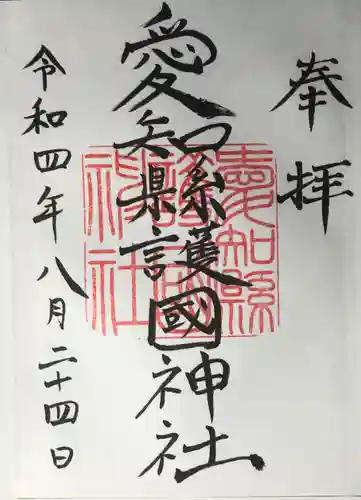 奉拝
愛知縣護國神社
愛知縣護國神社
令和四年八月二十四日